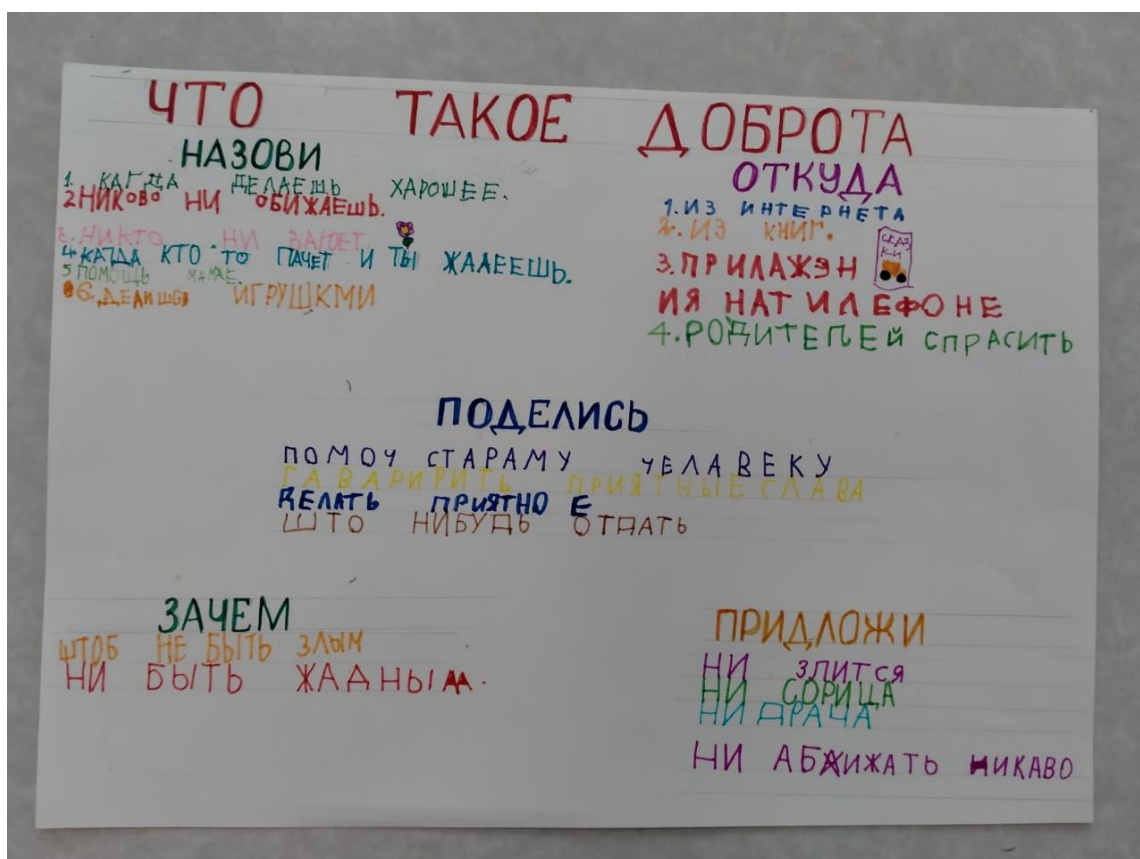 ЧТО ТАКОЕ ДОБРОТА
НАЗОВИ
1. КАГДА ДЕЛАЕШЬ ХАРОШЕЕ.
2 НИКОВО НИ ОБИЖАЕШЬ.
3. НИКТО НИ ВАЮЕТ.
4. КАГДА КТО ТО ПАЧЕТ И ТЫ ЖАЛЕЕШЬ.
5 ПОМОЩЬ МАМАЕ.
6. ДЕЛИШСЯ ИГРУШКМИ
ОТКУДА
1. ИЗ ИНТЕРНЕТА
2. ИЗ КНИГ.
СКАЗ
КИ
3. ПРИЛАЖЭН
ИЯ НАТИЛЕФОНЕ
4. РОДИТЕЛЕЙ СПРАСИТЬ
ПОДЕЛИСЬ
ПОМОЧ СТАРАМУ ЧЕЛАВЕКУ
ГАВАРИРИТЬ ПРИЯТНЫЕ СЛАВА
ДЕЛАТЬ ПРИЯТНОЕ
ШТО НИБУДЬ ОТДАТЬ
ЗАЧЕМ
ШТОБ НЕ БЫТЬ ЗЛЫМ
НИ БЫТЬ ЖАДНЫМ.
ПРИДЛОЖИ
НИ ЗЛИТСЯ
НИ СОРИЦА
НИ ДРАЧА
НИ АБИЖАТЬ НИКАВО